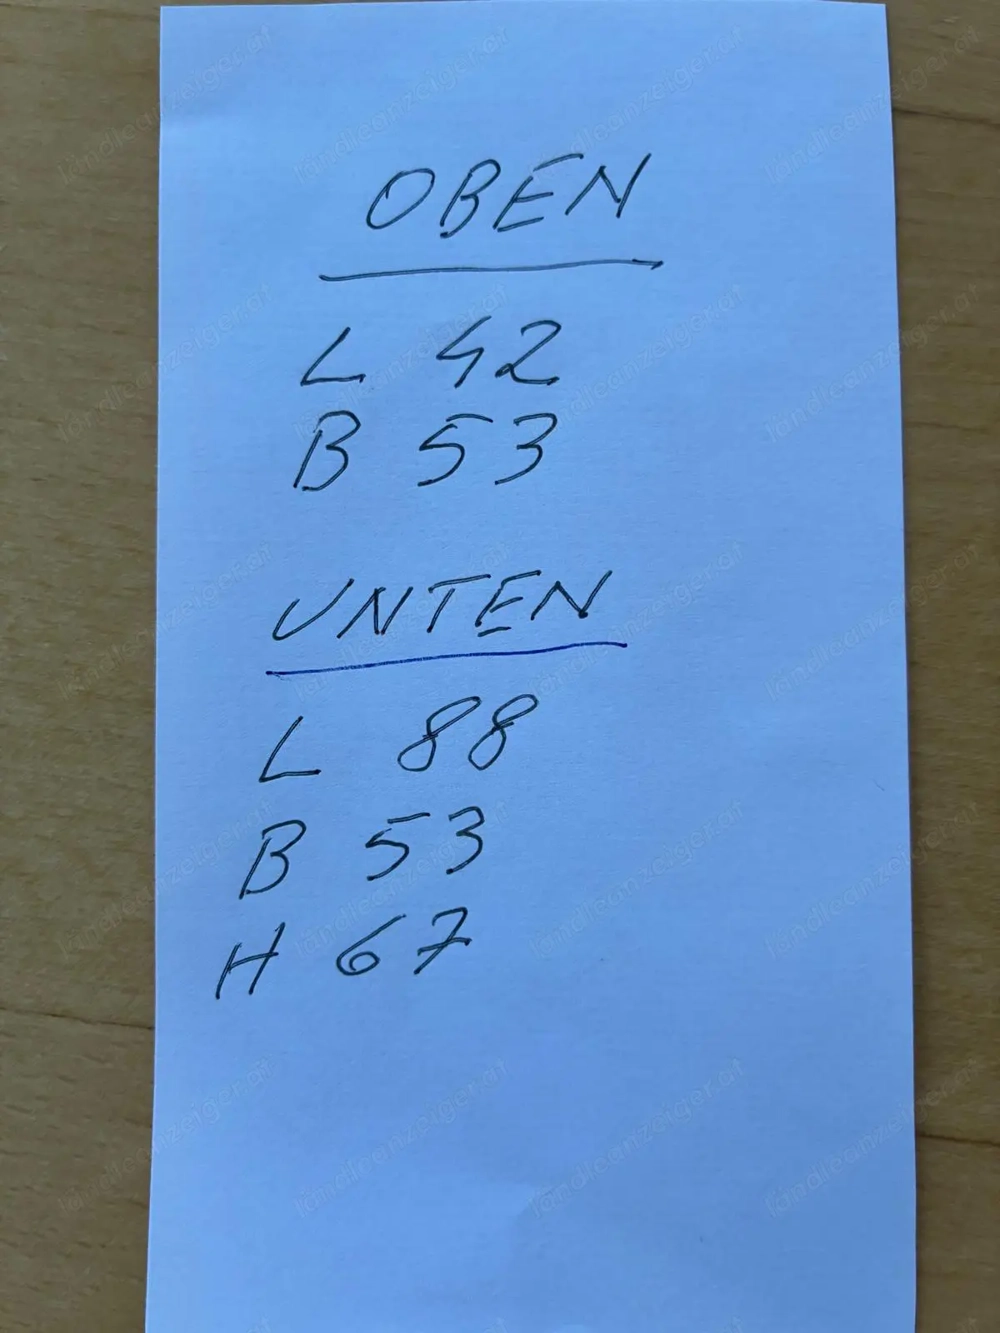 OBEN
L 42
B 53
UNTEN
L 88
B 53
H 67
ländleanzeiger.at